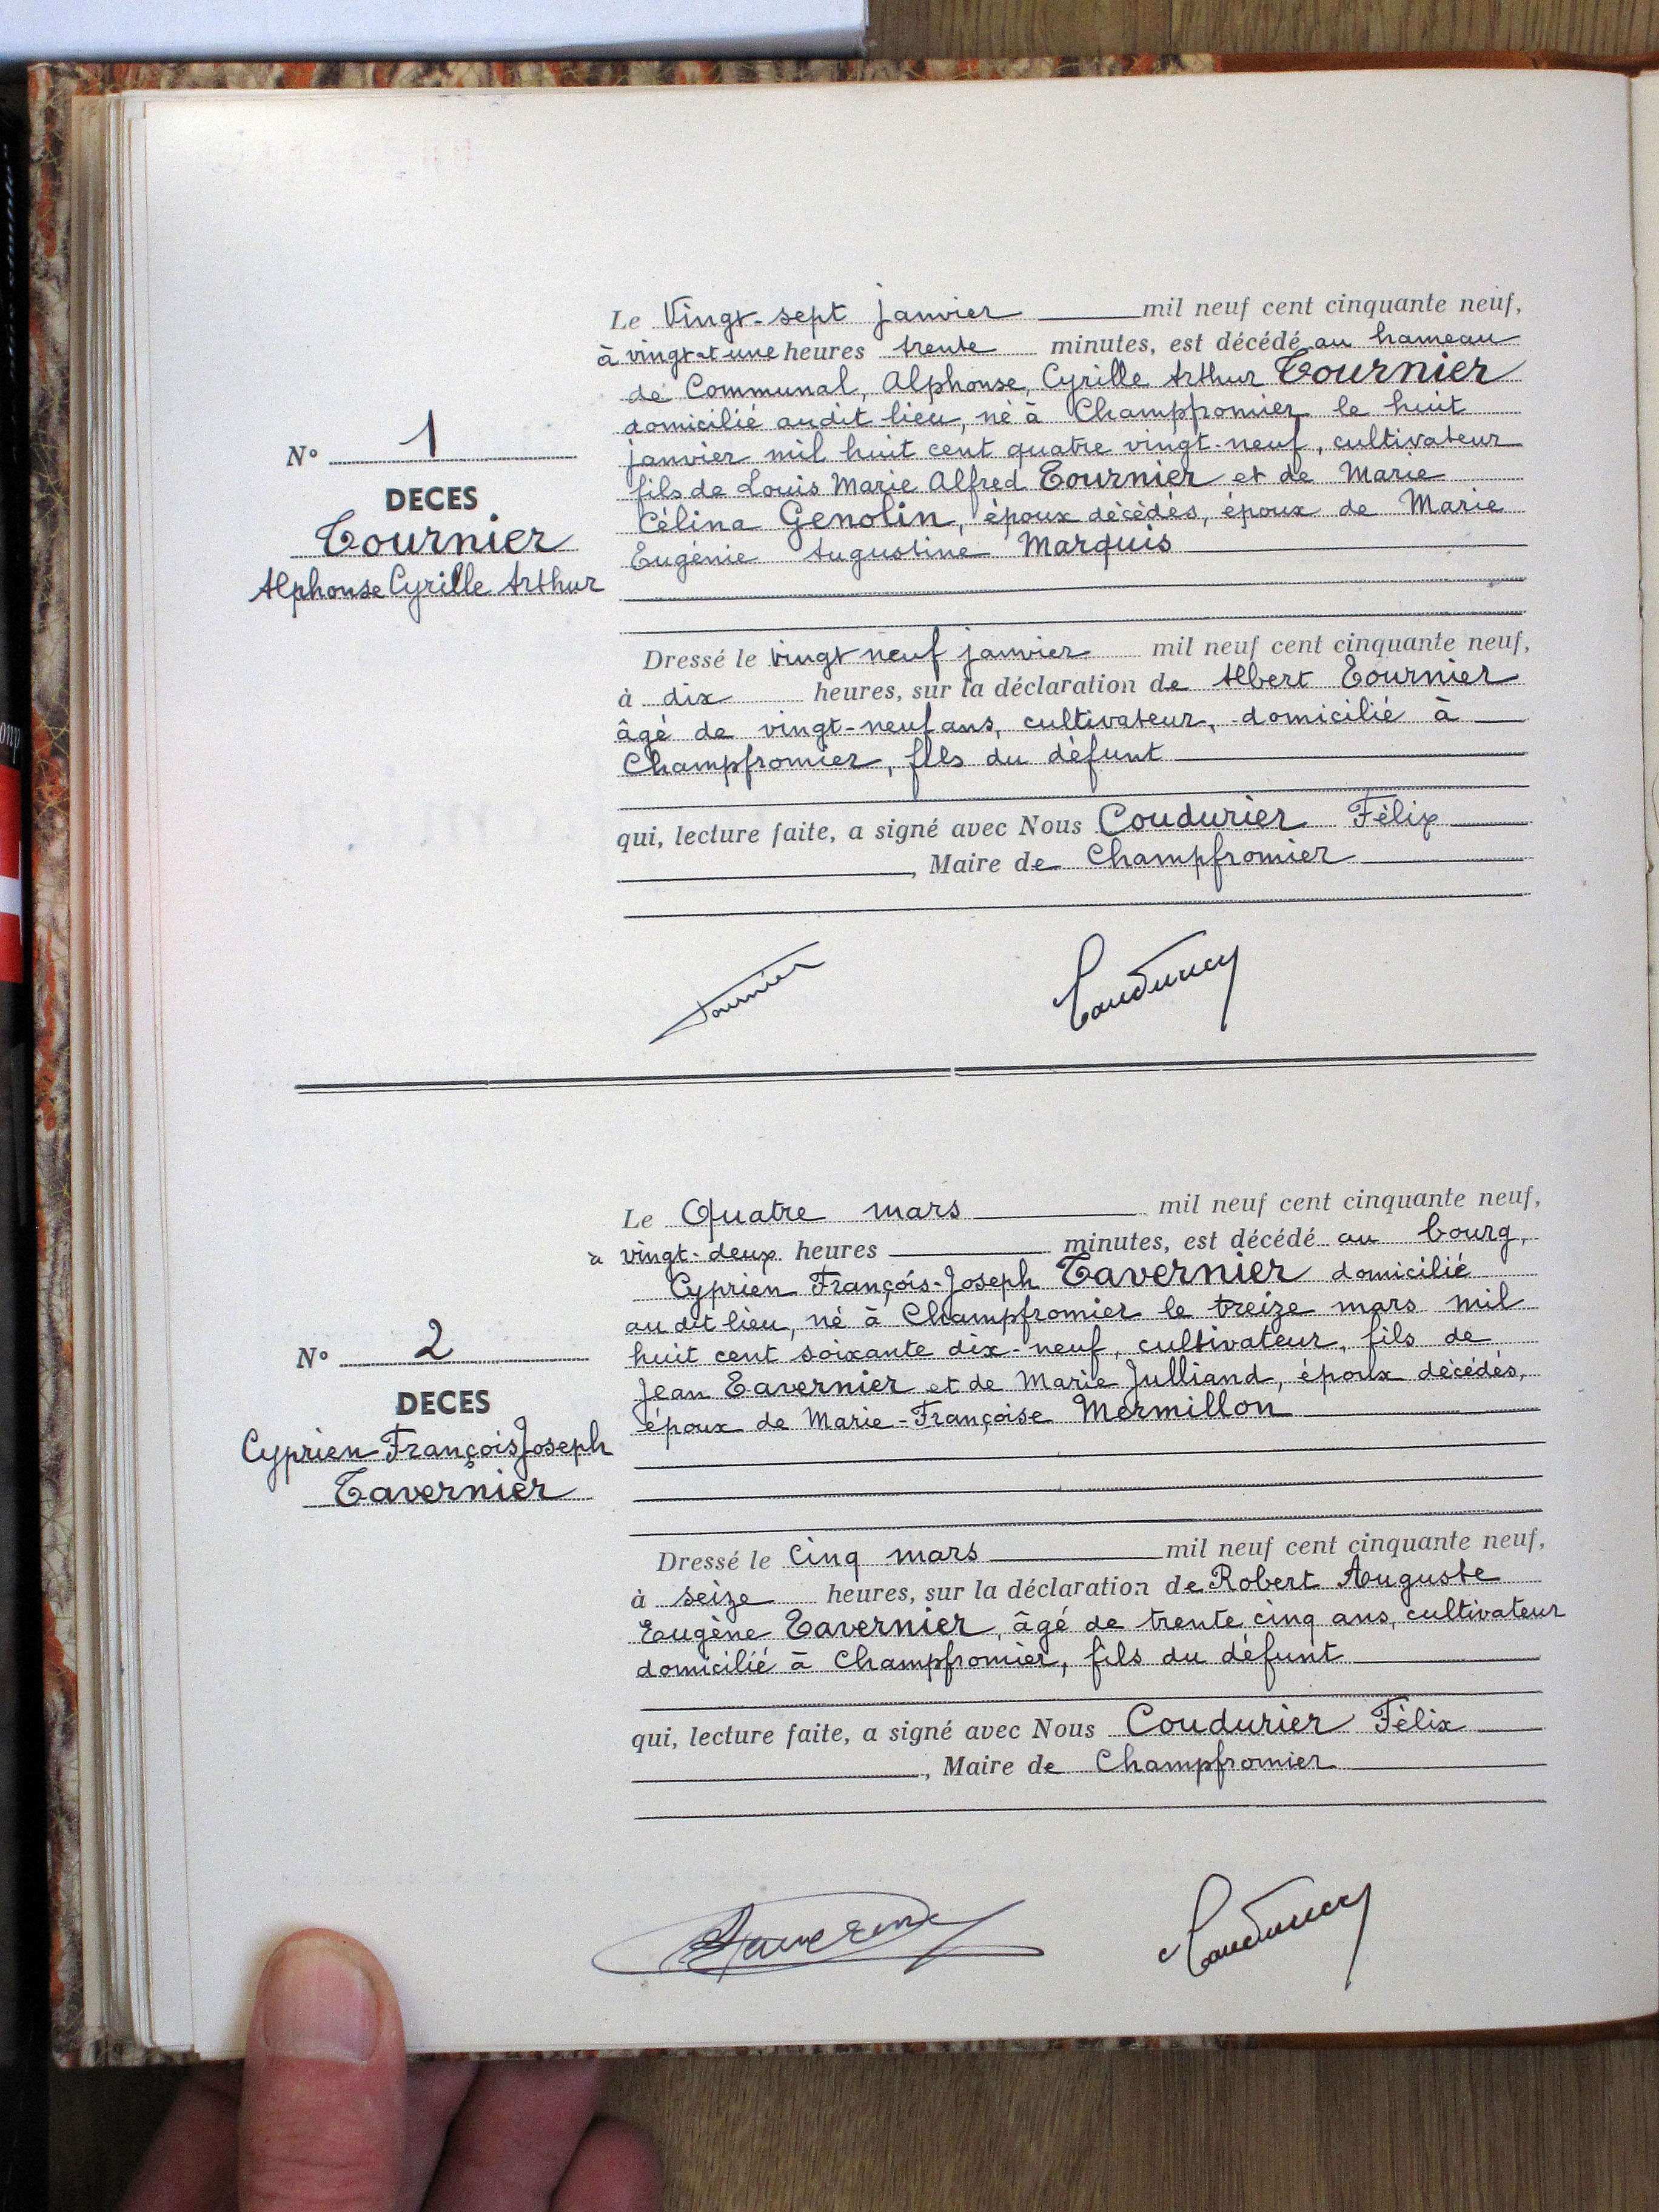 Le Vingt-sept janvier mil neuf cent cinquante neuf,
à vingt et une heures trente minutes, est décédé au hameau
de Communal, Alphonse, Cyrille Arthur Tournier
domicilié audit lieu, né à Champfromier le huit
janvier mil huit cent quatre vingt-neuf, cultivateur
fils de Louis Marie Alfred Tournier et de Marie
Célina Genolin, époux décédés, époux de Marie
Eugénie Augustine Marquis
N° 1
DECES
Tournier
Alphonse Cyrille Arthur
Dressé le vingt neuf janvier mil neuf cent cinquante neuf,
à dix heures, sur la déclaration de Albert Tournier
âgé de vingt-neuf ans, cultivateur, domicilié à
Champfromier, fils du défunt
qui, lecture faite, a signé avec Nous Coudurier Félix
, Maire de Champfromier
Tournier Coudurier
Le Quatre mars mil neuf cent cinquante neuf,
à vingt-deux heures minutes, est décédé au bourg,
Cyprien François-Joseph Tavernier domicilié
au dit lieu, né à Champfromier le treize mars mil
huit cent soixante dix-neuf, cultivateur, fils de
Jean Tavernier et de Marie Julliand, époux décédés,
époux de Marie-Françoise Mermillon
N° 2
DECES
Cyprien François Joseph
Tavernier
Dressé le Cinq mars mil neuf cent cinquante neuf,
à seize heures, sur la déclaration de Robert Auguste
Eugène Tavernier, âgé de trente cinq ans, cultivateur
domicilié à Champfromier, fils du défunt
qui, lecture faite, a signé avec Nous Coudurier Félix
, Maire de Champfromier
Tavernier Coudurier